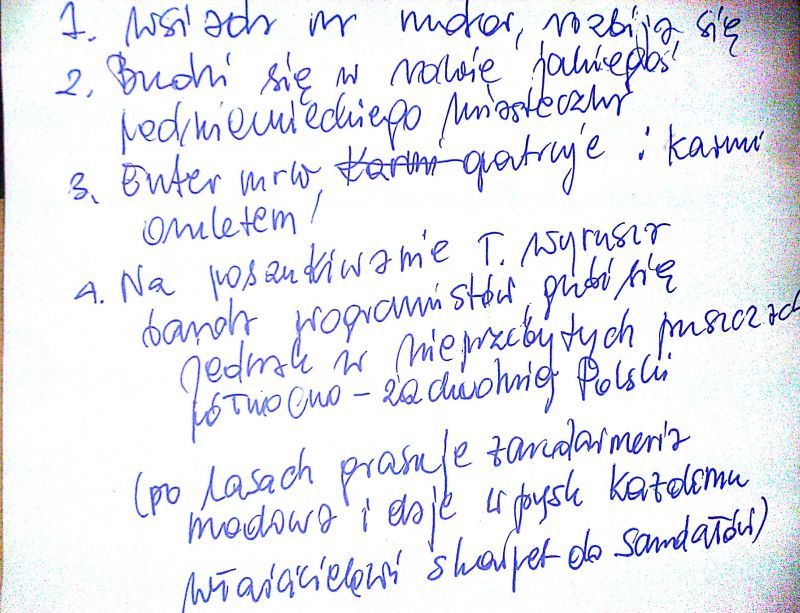 1. Wsiada na motor, rozbija się
2. Budzi się w rowie jakiegoś
podniemieckiego miasteczka
3. Enter mrw, Karmi opatruje i karmi
omletem!
4. Na poszukiwanie T. wyrusza
banda programistów, gubi się
jednak w nieprzebytych puszczach
północno-zachodniej Polski
(po lasach grasuje żandarmeria
modowa i daje w pysk każdemu
właścicielowi skarpet do sandałów)